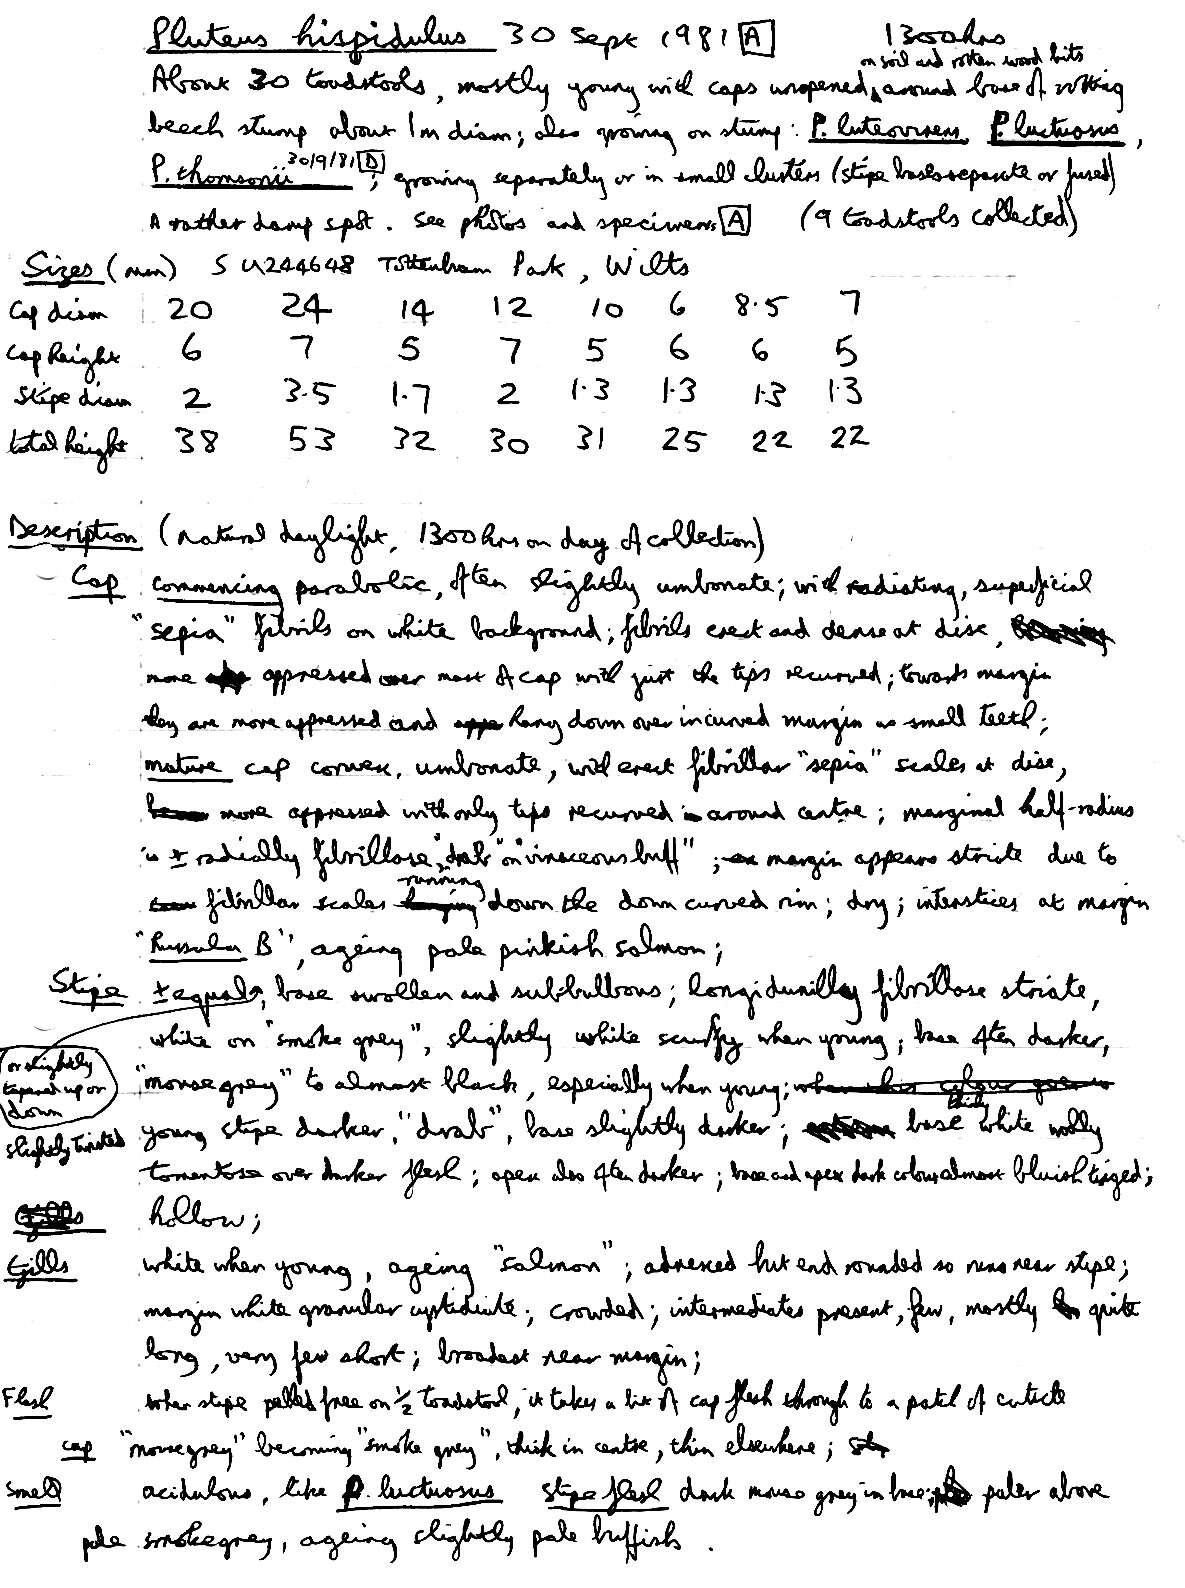 Pluteus hispidulus 30 Sept 1981 A 1300hrs
on soil and rotten wood bits
About 30 toadstools, mostly young with caps unopened, around base of rotting
beech stump about 1m diam; also growing on stump: P. luteovirens, P. luctuosus,
30/9/81 D
P. thomsonii; growing separately or in small clusters (stipe bases separate or fused)
A rather damp spot. See photos and specimens A (9 toadstools collected)
Sizes (mm) SU244648 Tottenham Park, Wilts
Cap diam 20 24 14 12 10 6 8.5 7
Cap height 6 7 5 7 5 6 6 5
Stipe diam 2 3.5 1.7 2 1.3 1.3 1.3 1.3
total height 38 53 32 30 31 25 22 22
Description (natural daylight, 1300hrs on day of collection)
Cap commencing parabolic, often slightly umbonate; with radiating, superficial
"sepia" fibrils on white background; fibrils erect and dense at disc,
more appressed over most of cap with just the tips recurved; towards margin
they are more appressed and hang down over incurved margin as small teeth;
mature cap convex, umbonate, with erect fibrillar "sepia" scales at disc,
more appressed with only tips recurved around centre; marginal half-radius
is ± radially fibrillose "drab" on "vinaceous buff"; margin appears striate due to
running
fibrillar scales down the down curved rim; dry; interstices at margin
"Russula B", ageing pale pinkish salmon;
Stipe ± equal, base swollen and sub-bulbous; longidunilly fibrillose striate,
white on "smoke grey", slightly white scurfy when young; base often darker,
or slightly
tapered up or
down
"mouse grey" to almost black, especially when young; when this colour goes
slightly twisted
young stipe darker, "drab", base slightly darker; base thinly white woolly
tomentose over darker flesh; apex also often darker; base and apex dark colour almost bluish tinged;
Gills hollow;
Gills white when young, ageing "salmon"; adnexed but end rounded so runs near stipe;
margin white granular cystidiate; crowded; intermediates present, few, mostly quite
long, very few short; broadest near margin;
Flesh when stipe pulled free on ½ toadstool, it takes a bit of cap flesh through to a patch of cuticle
cap "mouse grey" becoming "smoke grey", thick in centre, thin elsewhere;
Smell acidulous, like P. luctuosus stipe flesh dark mouse grey in base; paler above
pale smoke grey, ageing slightly pale buffish.